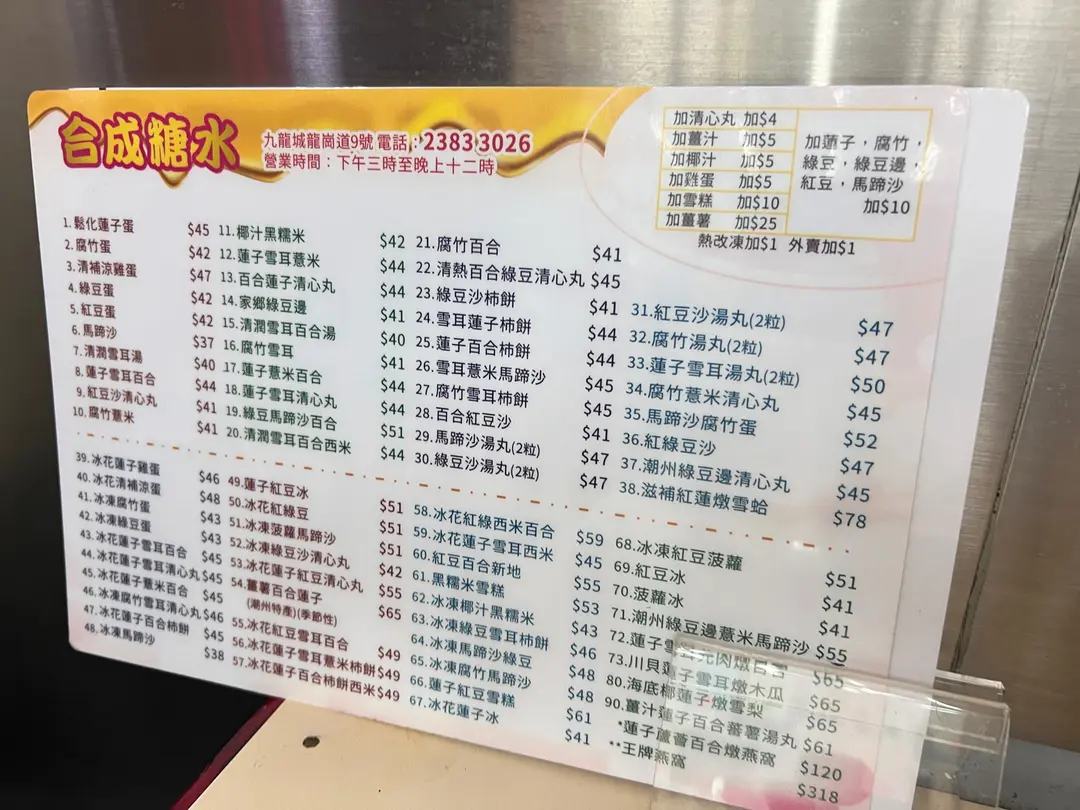 合成糖水
九龍城龍崗道9號 電話：2383 3026
營業時間：下午三時至晚上十二時
加清心丸 加$4
加薑汁 加$5
加椰汁 加$5
加雞蛋 加$5
加雪糕 加$10
加薑薯 加$25
加蓮子，腐竹，
綠豆，綠豆邊，
紅豆，馬蹄沙
加$10
熱改凍加$1 外賣加$1
1.鬆化蓮子蛋 $45
2.腐竹蛋 $42
3.清補涼雞蛋 $47
4.綠豆蛋 $42
5.紅豆蛋 $42
6.馬蹄沙 $37
7.清潤雪耳湯 $40
8.蓮子雪耳百合 $44
9.紅豆沙清心丸 $41
10.腐竹薏米 $41
11.椰汁黑糯米 $42
12.蓮子雪耳薏米 $44
13.百合蓮子清心丸 $44
14.家鄉綠豆邊 $41
15.清潤雪耳百合湯 $40
16.腐竹雪耳 $41
17.蓮子薏米百合 $44
18.蓮子雪耳清心丸 $44
19.綠豆馬蹄沙百合 $51
20.清潤雪耳百合西米 $44
21.腐竹百合 $41
22.清熱百合綠豆清心丸 $45
23.綠豆沙柿餅 $41
24.雪耳蓮子柿餅 $44
25.蓮子百合柿餅 $44
26.雪耳薏米馬蹄沙 $45
27.腐竹雪耳柿餅 $45
28.百合紅豆沙 $41
29.馬蹄沙湯丸(2粒) $47
30.綠豆沙湯丸(2粒) $47
31.紅豆沙湯丸(2粒) $47
32.腐竹湯丸(2粒) $47
33.蓮子雪耳湯丸(2粒) $50
34.腐竹薏米清心丸 $45
35.馬蹄沙腐竹蛋 $52
36.紅綠豆沙 $47
37.潮州綠豆邊清心丸 $45
38.滋補紅蓮燉雪蛤 $78
39.冰花蓮子雞蛋 $46
40.冰花清補涼蛋 $48
41.冰凍腐竹蛋 $43
42.冰凍綠豆蛋 $43
43.冰花蓮子雪耳百合 $45
44.冰花蓮子雪耳清心丸 $45
45.冰花蓮子薏米百合 $45
46.冰凍腐竹雪耳清心丸 $46
47.冰花蓮子百合柿餅 $45
48.冰凍馬蹄沙 $38
49.蓮子紅豆冰 $51
50.冰花紅綠豆 $51
51.冰凍菠蘿馬蹄沙 $51
52.冰凍綠豆沙清心丸 $42
53.冰花蓮子紅豆清心丸 $55
54.薑薯百合蓮子 $65
(潮州特產)(季節性)
55.冰花紅豆雪耳百合 $49
56.冰花蓮子雪耳薏米柿餅 $49
57.冰花蓮子百合柿餅西米 $49
58.冰花紅綠西米百合 $59
59.冰花蓮子雪耳西米 $45
60.紅豆百合新地 $55
61.黑糯米雪糕 $53
62.冰凍椰汁黑糯米 $43
63.冰凍綠豆雪耳柿餅 $46
64.冰凍馬蹄沙綠豆 $48
65.冰凍腐竹馬蹄沙 $48
66.蓮子紅豆雪糕 $61
67.冰花蓮子冰 $41
68.冰凍紅豆菠蘿 $51
69.紅豆冰 $41
70.菠蘿冰 $41
71.潮州綠豆邊薏米馬蹄沙 $55
72.蓮子雪 肉燉 $65
73.川貝蓮子雪耳燉木瓜 $65
80.海底椰蓮子燉雪梨 $65
90.薑汁蓮子百合蕃薯湯丸 $61
*蓮子蘆薈百合燉燕窩 $120
**王牌燕窩 $318